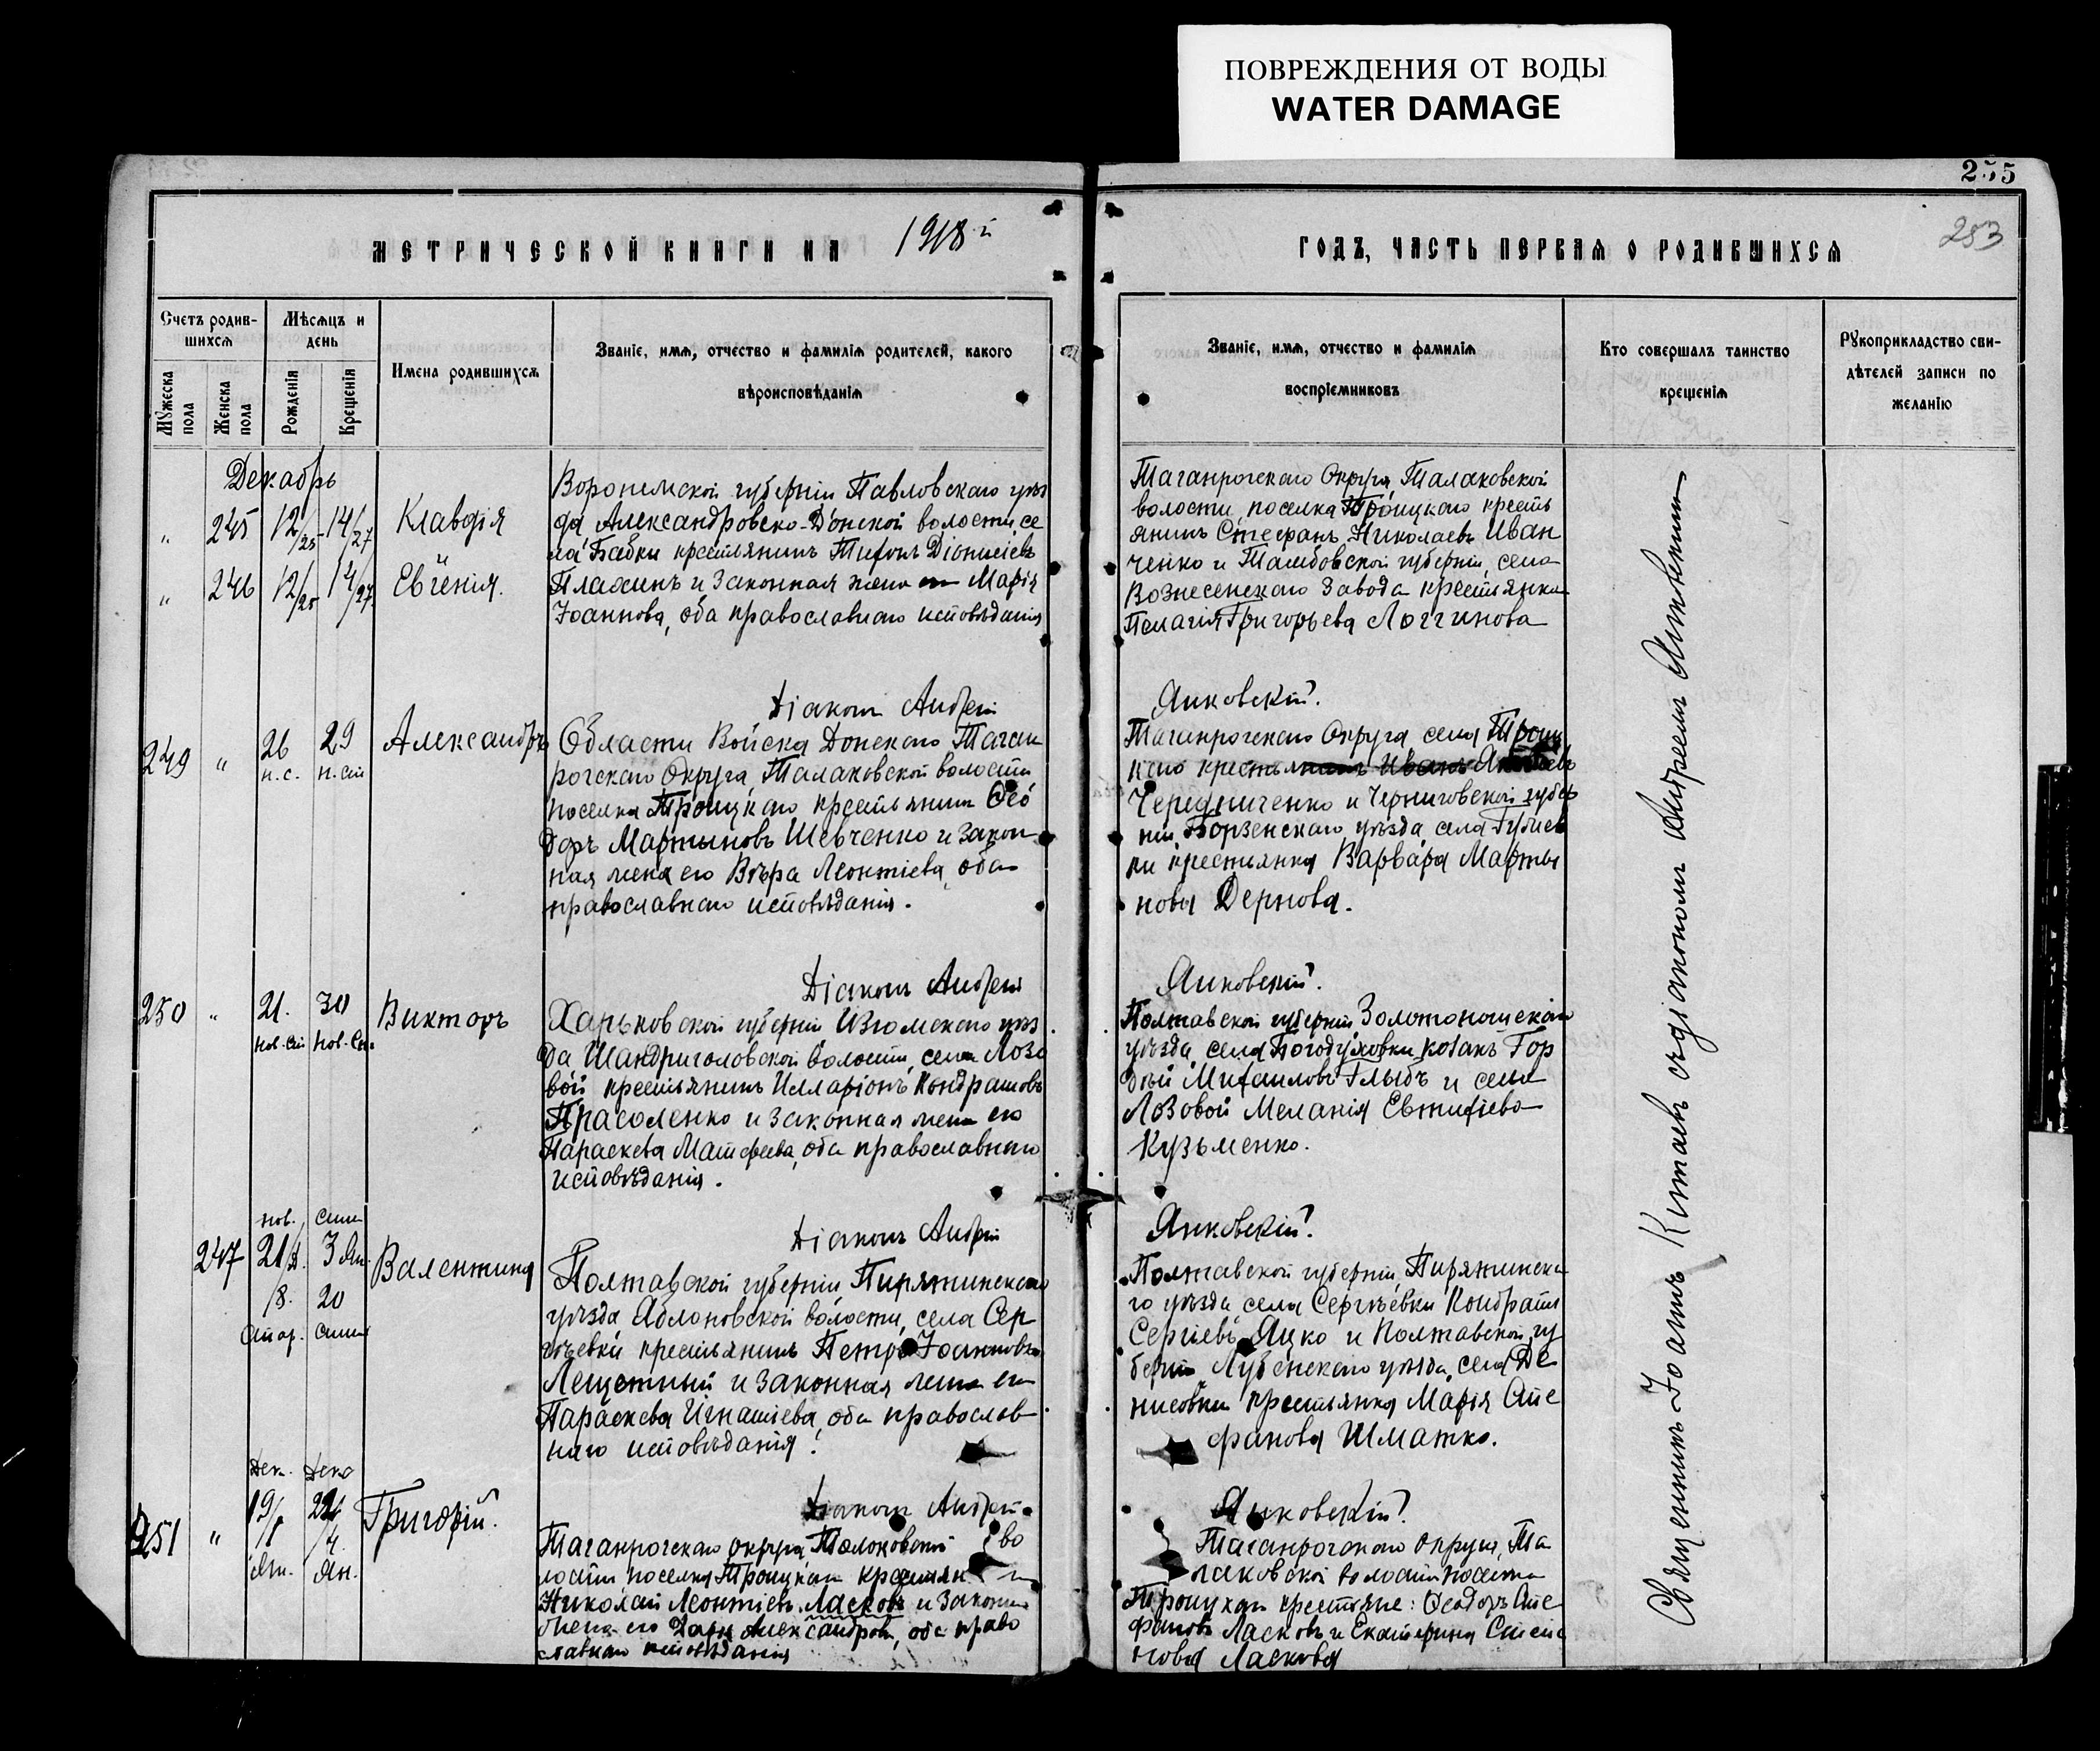 ПОВРЕЖДЕНИЯ ОТ ВОДЫ
WATER DAMAGE
255
253
МЕТРИЧЕСКОЙ КНИГИ НА 1918 й
ГОДЪ, ЧАСТЬ ПЕРВАЯ О РОДИВШИХСЯ
Счетъ родив-
шихся
Мѣсяцъ и
день
Имена родившихся
Званіе, имя, отчество и фамилія родителей, какого
вѣроисповѣданія
Мужеска пола
Женска пола
Рожденія
Крещенія
Званіе, имя, отчество и фамилія
воспріемниковъ
Кто совершалъ таинство
крещенія
Рукоприкладство сви-
дѣтелей записи по
желанію
Декабрь
" 245 12/25 14/27 Клавдія
" 246 12/25 14/27 Евгенія.
Воронежской губерніи Павловскаго уѣз
да Александровско-Донской волости се
ла Бабки крестьянинъ Тихонъ Діонисіевъ
Плахинъ и законная жена его Марія
Іоаннова, оба православнаго исповѣданія
Таганрогскаго Округа, Талаковской
волости поселка Троицкаго кресть
янинъ Стефанъ Николаевъ Иван
ченко и Тамбовской губерніи, села
Вознесенскаго Завода крестьянка
Пелагія Григорьева Логгинова
Діаконъ Андрей
Янковскій.
249 " 26 29 Александръ
н.с. н.сти
Области Войска Донского Таган
рогскаго Округа, Талаковской волости
поселка Троицкаго крестьянинъ Ѳео
доръ Мартыновъ Шевченко и закон
ная жена его Вѣра Леонтіева, оба
православнаго исповѣданія.
Таганрогскаго Округа, села Троиц
каго крестьянинъ Иванъ Яковлевъ
Чередниченко и Черниговской губер
ніи, Борзенскаго уѣзда, села
крестьянка Варвара Марты
нова Дернова.
Діаконъ Андрей
Янковскій.
250 " 21. 30 Викторъ
нов. сти нов. ст.
Харьковской губерніи Изюмскаго уѣз
да Шандриголовской волости, села Лозо
вой крестьянинъ Илларіонъ Кондратовъ
Прасоленко и законная жена его
Параскева Матѳеева, оба православнаго
исповѣданія.
Полтавской губерніи Золотоношскаго
уѣзда, села Богодуховки козакъ Гор
дѣй Михаиловъ Глыбъ и села
Лозовой Меланія Евтихіева
Кузьменко.
Діаконъ Андрей
Янковскій.
нов. стил
247 21/д. 3 Ян. Валентина
/8. 20
Стар. стил
Полтавской губерніи, Пирятинскаго
уѣзда Яблоновской волости, села Сер
гѣевки крестьянинъ Петръ Іоанновъ
Лещетный и законная жена его
Параскева Игнатіева, оба православ
наго исповѣданія.
Полтавской губерніи, Пирятинска
го уѣзда села Сергѣевки Кондратъ
Сергіевъ Яцко и Полтавской гу
берніи Лубенскаго уѣзда, села Де
нисовки крестьянка Марія Сте
фанова Шматко.
Діаконъ Андрей
Янковскій.
Дек. Дека
251 " 19/1 22/4 Григорій.
Ян. Ян.
Таганрогскаго округа, Талаковской во
лости поселка Троицкаго крестьянинъ
Николай Леонтіевъ Ласковъ и законная
жена его Дарія Александрова, оба право
славнаго исповѣданія
Таганрогскаго округа, Та
лаковской волости поселка
Троицкаго крестьяне: Ѳеодоръ Сте
фановъ Ласковъ и Екатерина Степа
нова Ласкова
Священникъ Іоаннъ Китаевъ съ діакономъ Андреемъ Янковскимъ